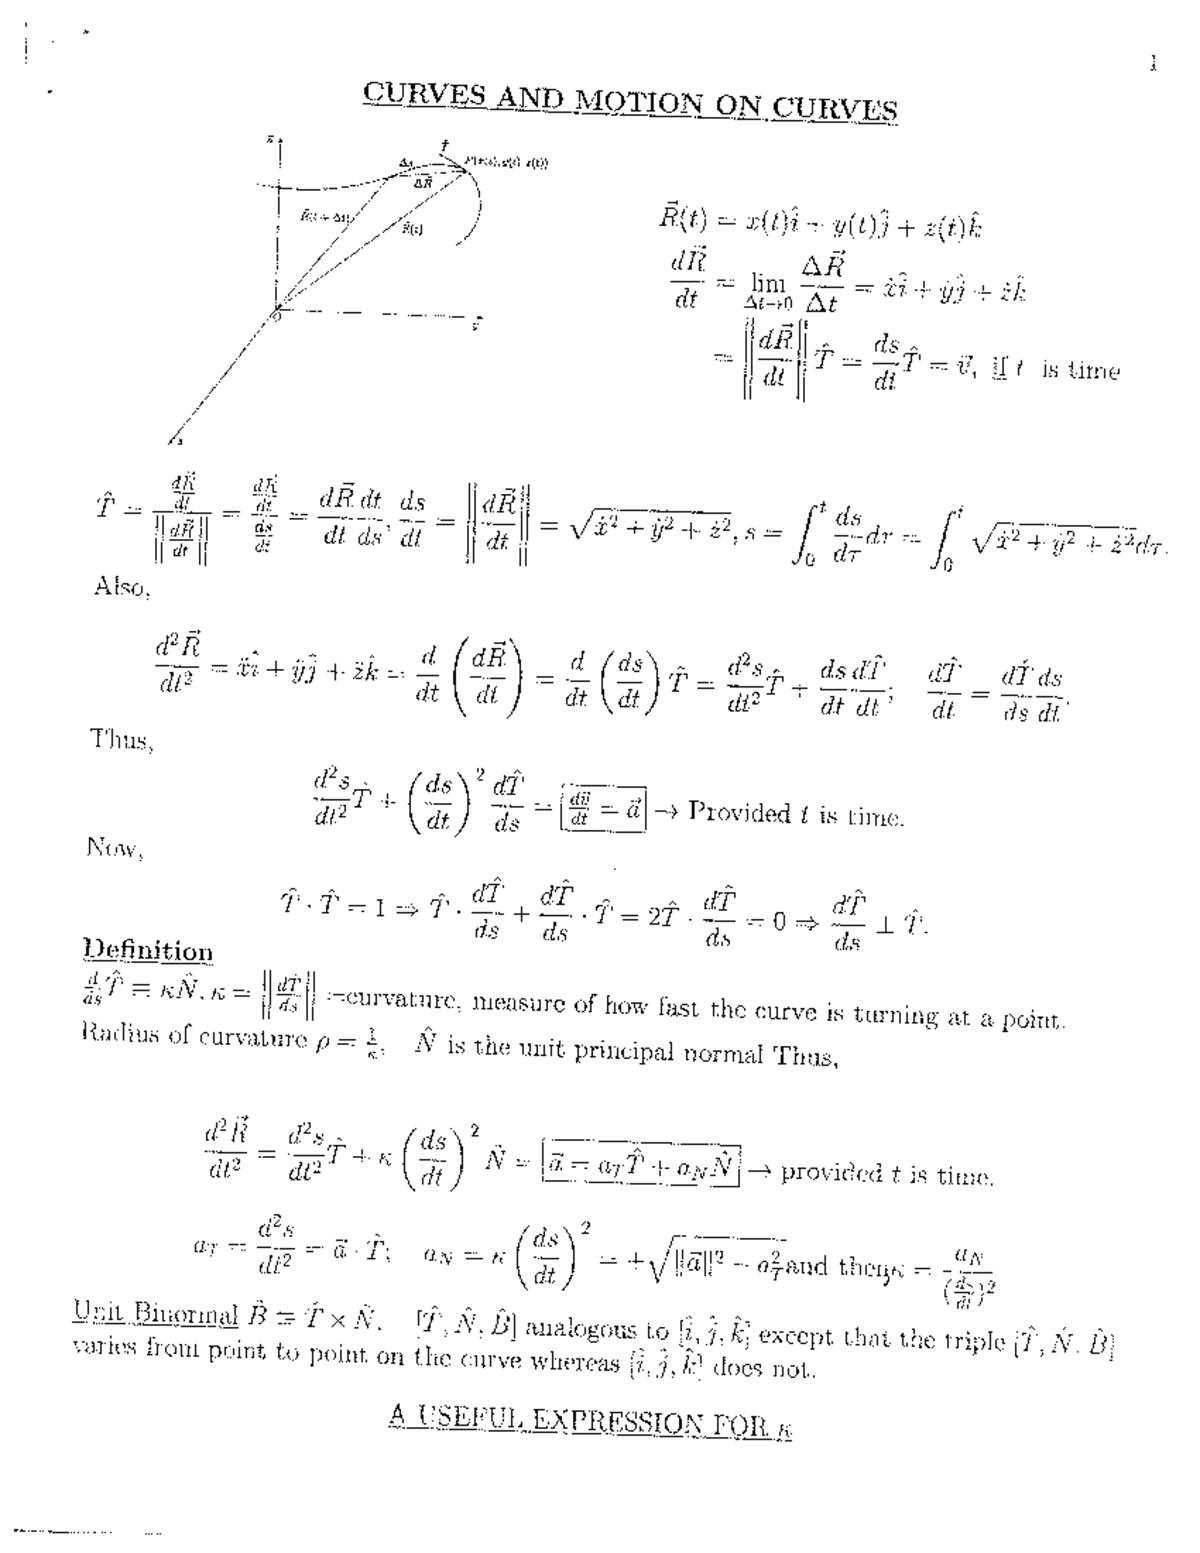 1
CURVES AND MOTION ON CURVES
$\vec{R}(t) = x(t)\hat{i} + y(t)\hat{j} + z(t)\hat{k}$
$\frac{d\vec{R}}{dt} = \lim_{\Delta t \to 0} \frac{\Delta \vec{R}}{\Delta t} = \dot{x}\hat{i} + \dot{y}\hat{j} + \dot{z}\hat{k}$
$= \left\| \frac{d\vec{R}}{dt} \right\| \hat{T} = \frac{ds}{dt}\hat{T} = \vec{v}$, if t is time
$\Delta s$
$\Delta \vec{R}$
$\vec{R}(t + \Delta t)$
$\vec{R}(t)$
O
$\hat{T} = \frac{\frac{d\vec{R}}{dt}}{\left\| \frac{d\vec{R}}{dt} \right\|} = \frac{\frac{d\vec{R}}{dt}}{\frac{ds}{dt}} = \frac{d\vec{R}}{dt}\frac{dt}{ds}, \frac{ds}{dt} = \left\| \frac{d\vec{R}}{dt} \right\| = \sqrt{\dot{x}^2 + \dot{y}^2 + \dot{z}^2}, s = \int_0^t \frac{ds}{d\tau}d\tau = \int_0^t \sqrt{\dot{x}^2 + \dot{y}^2 + \dot{z}^2}d\tau.$
Also,
$\frac{d^2\vec{R}}{dt^2} = \ddot{x}\hat{i} + \ddot{y}\hat{j} + \ddot{z}\hat{k} = \frac{d}{dt}\left(\frac{d\vec{R}}{dt}\right) = \frac{d}{dt}\left(\frac{ds}{dt}\right)\hat{T} = \frac{d^2s}{dt^2}\hat{T} + \frac{ds}{dt}\frac{d\hat{T}}{dt}; \quad \frac{d\hat{T}}{dt} = \frac{d\hat{T}}{ds}\frac{ds}{dt}.$
Thus,
$\frac{d^2s}{dt^2}\hat{T} + \left(\frac{ds}{dt}\right)^2 \frac{d\hat{T}}{ds} = \boxed{\frac{d\vec{v}}{dt} = \vec{a}} \to$ Provided t is time.
Now,
$\hat{T} \cdot \hat{T} = 1 \Rightarrow \hat{T} \cdot \frac{d\hat{T}}{ds} + \frac{d\hat{T}}{ds} \cdot \hat{T} = 2\hat{T} \cdot \frac{d\hat{T}}{ds} = 0 \Rightarrow \frac{d\hat{T}}{ds} \perp \hat{T}.$
Definition
$\frac{d}{ds}\hat{T} = \kappa\hat{N}, \kappa = \left\| \frac{d\hat{T}}{ds} \right\|$ :=curvature, measure of how fast the curve is turning at a point.
Radius of curvature $\rho = \frac{1}{\kappa}, \quad \hat{N}$ is the unit principal normal Thus,
$\frac{d^2\vec{R}}{dt^2} = \frac{d^2s}{dt^2}\hat{T} + \kappa\left(\frac{ds}{dt}\right)^2 \hat{N} = \boxed{\vec{a} = a_T\hat{T} + a_N\hat{N}} \to$ provided t is time.
$a_T = \frac{d^2s}{dt^2} = \vec{a} \cdot \hat{T}; \quad a_N = \kappa\left(\frac{ds}{dt}\right)^2 = +\sqrt{\|\vec{a}\|^2 - a_T^2}$ and then, $\kappa = \frac{a_N}{(\frac{ds}{dt})^2}$
Unit Binormal $\hat{B} = \hat{T} \times \hat{N}. \quad [\hat{T}, \hat{N}, \hat{B}]$ analogous to $[\hat{i}, \hat{j}, \hat{k}]$ except that the triple $[\hat{T}, \hat{N}, \hat{B}]$
varies from point to point on the curve whereas $[\hat{i}, \hat{j}, \hat{k}]$ does not.
A USEFUL EXPRESSION FOR κ